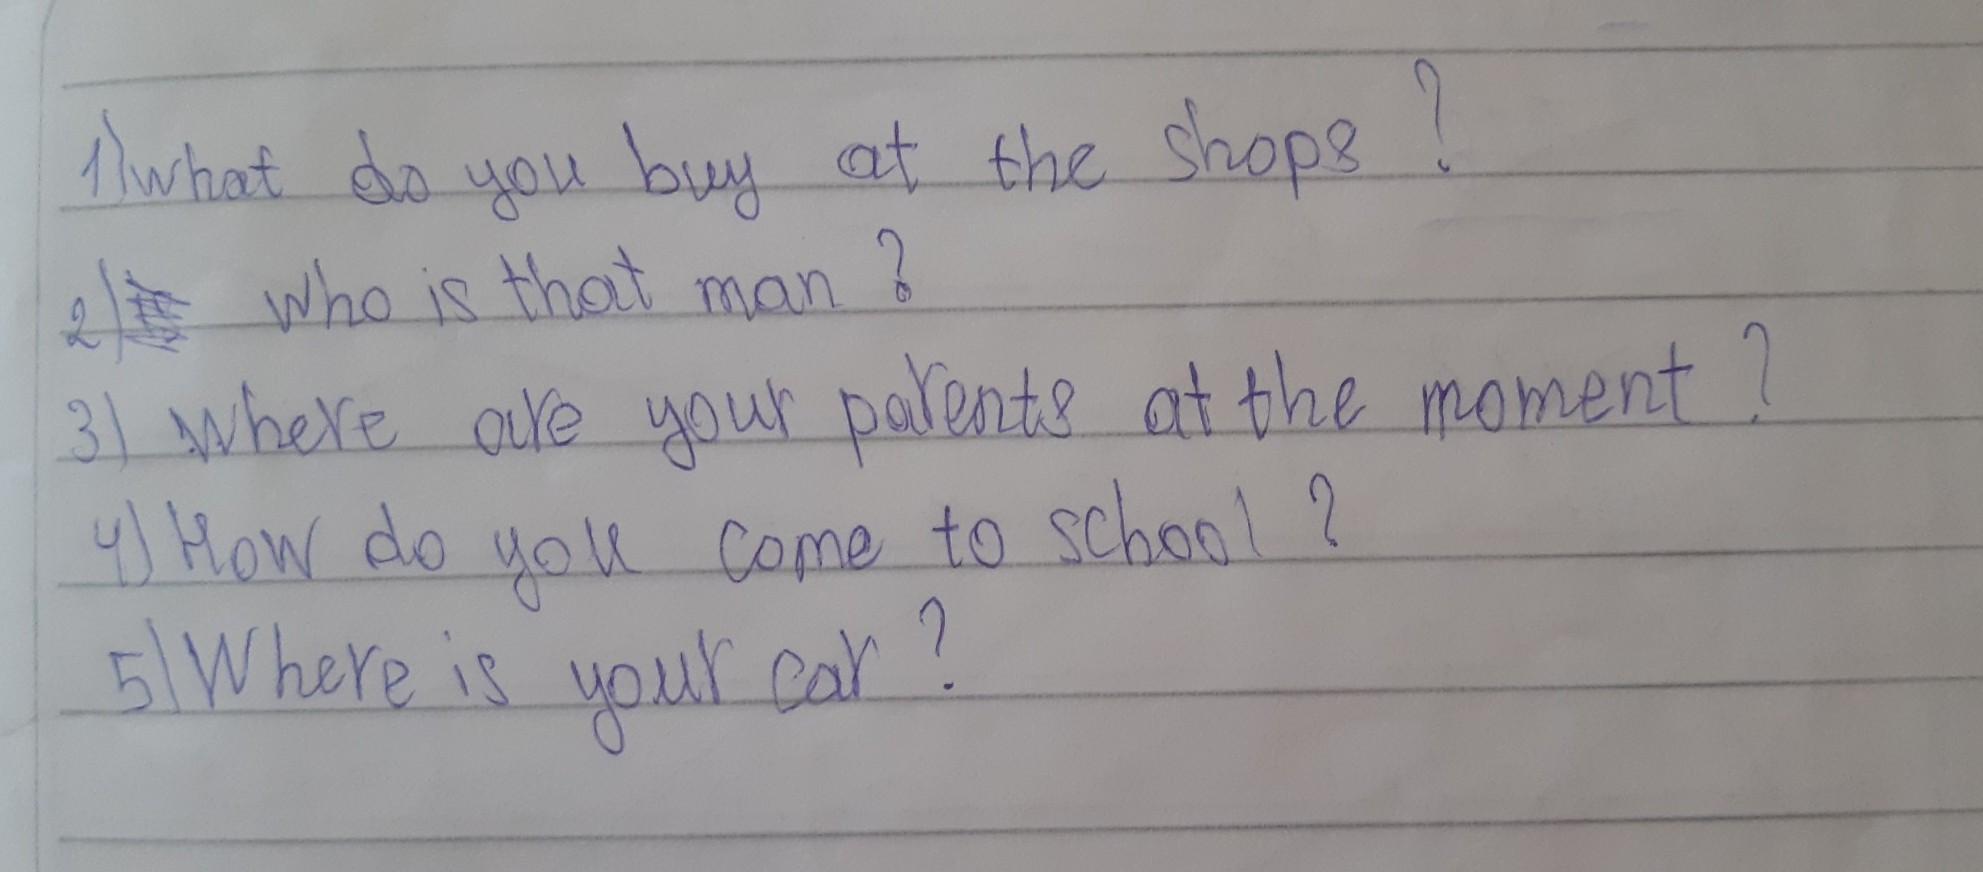 1) what do you buy at the shops?
2) Who is that man?
3) Where are your parents at the moment?
4) How do you come to school?
5) Where is your car?